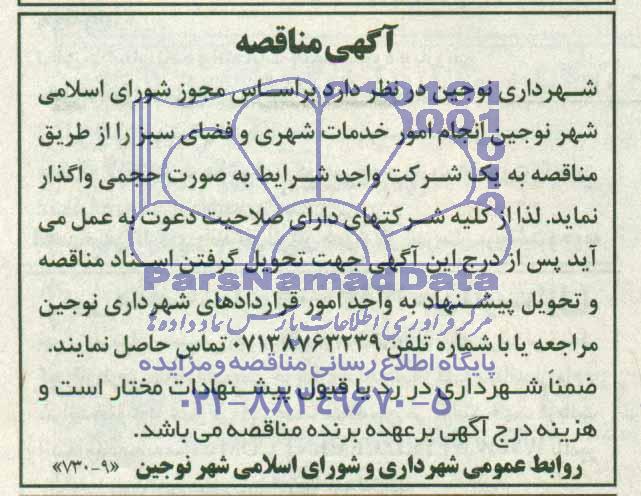 آگهی مناقصه
شهرداری نوجین در نظر دارد براساس مجوز شورای اسلامی
شهر نوجین انجام امور خدمات شهری و فضای سبز را از طریق
مناقصه به یک شرکت واجد شرایط به صورت حجمی واگذار
نماید. لذا از کلیه شرکتهای دارای صلاحیت دعوت به عمل می
آید پس از درج این آگهی جهت تحویل گرفتن اسناد مناقصه
ParsNamadData
و تحویل پیشنهاد به واجد امور قراردادهای شهرداری نوجین
مرکز فرآوری اطلاعات پارس نماد داده ها
مراجعه یا با شماره تلفن ۰۷۱۳۸۷۶۳۲۳۹ تماس حاصل نمایند.
پایگاه اطلاع رسانی مناقصه و مزایده
ضمناً شهرداری در رد یا قبول پیشنهادات مختار است و
۰۲۱-۸۸۳۴۹۶۷۰-۵
هزینه درج آگهی بر عهده برنده مناقصه می باشد.
روابط عمومی شهرداری و شورای اسلامی شهر نوجین «۹-۷۳۰»